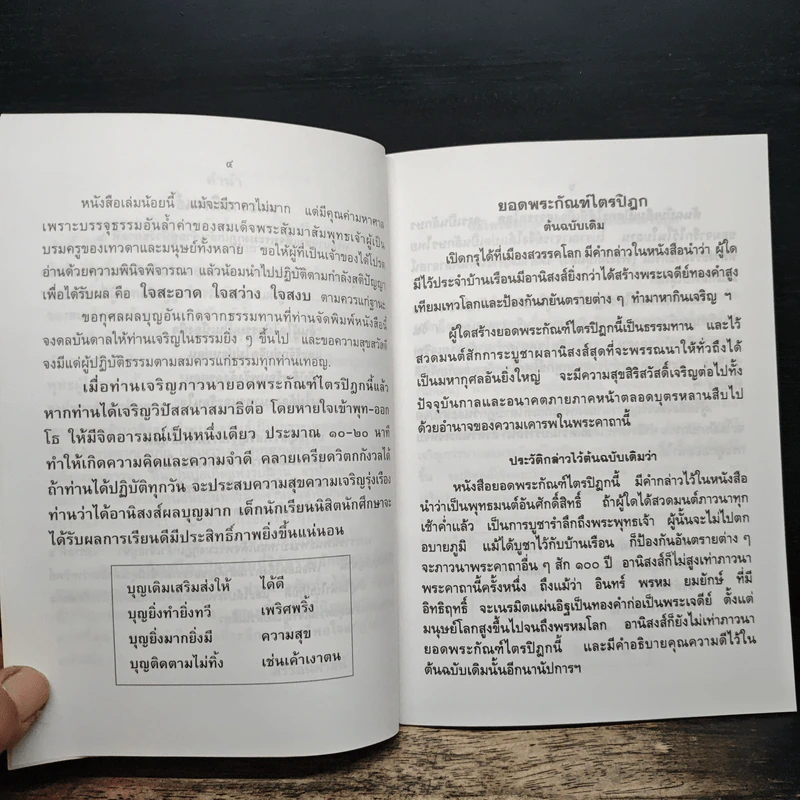 ๔
หนังสือเล่มน้อยนี้ แม้จะมีราคาไม่มาก แต่มีคุณค่ามหาศาล
เพราะบรรจุธรรมอันล้ำค่าของสมเด็จพระสัมมาสัมพุทธเจ้าผู้เป็น
บรมครูของเทวดาและมนุษย์ทั้งหลาย ขอให้ผู้ที่เป็นเจ้าของได้โปรด
อ่านด้วยความพินิจพิจารณา แล้วน้อมนำไปปฏิบัติตามกำลังสติปัญญา
เพื่อได้รับผล คือ ใจสะอาด ใจสว่าง ใจสงบ ตามควรแก่ฐานะ
ขอกุศลผลบุญอันเกิดจากธรรมทานที่ท่านจัดพิมพ์หนังสือนี้
จงดลบันดาลให้ท่านเจริญในธรรมยิ่ง ๆ ขึ้นไป และขอความสุขสวัสดี
จงมีแด่ผู้ปฏิบัติธรรมตามสมควรแก่ธรรมทุกท่านเทอญ.
เมื่อท่านเจริญภาวนายอดพระกัณฑ์ไตรปิฎกนี้แล้ว
หากท่านได้เจริญวิปัสสนาสมาธิต่อ โดยหายใจเข้าพุท-ออก
โธ ให้มีจิตอารมณ์เป็นหนึ่งเดียว ประมาณ ๑๐-๒๐ นาที
ทำให้เกิดความคิดและความจำดี คลายเครียดวิตกกังวลได้
ถ้าท่านได้ปฏิบัติทุกวัน จะประสบความสุขความเจริญรุ่งเรือง
ท่านว่าได้อานิสงส์ผลบุญมาก เด็กนักเรียนนิสิตนักศึกษาจะ
ได้รับผลการเรียนดีมีประสิทธิ์ภาพยิ่งขึ้นแน่นอน
บุญเดิมเสริมส่งให้ ได้ดี
บุญยิ่งทำยิ่งทวี เพริศพริ้ง
บุญยิ่งมากยิ่งมี ความสุข
บุญติดตามไม่ทิ้ง เช่นเค้าเงาตน
ยอดพระกัณฑ์ไตรปิฎก
ต้นฉบับเดิม
เปิดกรุได้ที่เมืองสวรรคโลก มีคำกล่าวในหนังสือนำว่า ผู้ใด
มีไว้ประจำบ้านเรือนมีอานิสงส์ยิ่งกว่าได้สร้างพระเจดีย์ทองคำสูง
เทียมเทวโลกและป้องกันภยันตรายต่าง ๆ ทำมาหากินเจริญ ฯ
ผู้ใดสร้างยอดพระกัณฑ์ไตรปิฎกนี้เป็นธรรมทาน และไว้
สวดมนต์สักการะบูชาผลานิสงส์สุดที่จะพรรณนาให้ทั่วถึงได้
เป็นมหากุศลอันยิ่งใหญ่ จะมีความสุขสิริสวัสดิ์เจริญต่อไปทั้ง
ปัจจุบันกาลและอนาคตภายภาคหน้าตลอดบุตรหลานสืบไป
ด้วยอำนาจของความเคารพในพระคาถานี้
ประวัติกล่าวไว้ต้นฉบับเดิมว่า
หนังสือยอดพระกัณฑ์ไตรปิฎกนี้ มีคำกล่าวไว้ในหนังสือ
นำว่าเป็นพุทธมนต์อันศักดิ์สิทธิ์ ถ้าผู้ใดได้สวดมนต์ภาวนาทุก
เช้าค่ำแล้ว เป็นการบูชารำลึกถึงพระพุทธเจ้า ผู้นั้นจะไม่ไปตก
อบายภูมิ แม้ได้บูชาไว้กับบ้านเรือน ก็ป้องกันอันตรายต่าง ๆ
จะภาวนาพระคาถาอื่น ๆ สัก ๑๐๐ ปี อานิสงส์ก็ไม่สูงเท่าภาวนา
พระคาถานี้ครั้งหนึ่ง ถึงแม้ว่า อินทร์ พรหม ยมยักษ์ ที่มี
อิทธิฤทธิ์ จะเนรมิตแผ่นอิฐเป็นทองคำก่อเป็นพระเจดีย์ ตั้งแต่
มนุษย์โลกสูงขึ้นไปจนถึงพรหมโลก อานิสงส์ก็ยังไม่เท่าภาวนา
ยอดพระกัณฑ์ไตรปิฎกนี้ และมีคำอธิบายคุณความดีไว้ใน
ต้นฉบับเดิมนั้นอีกนานัปการฯ